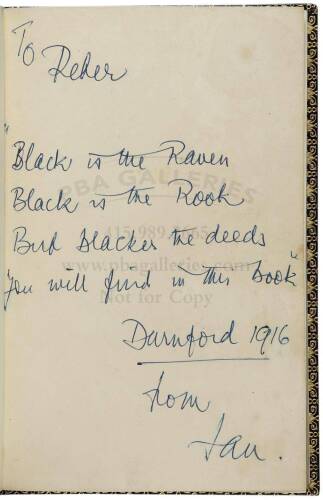 To
Peter
"Black is the Raven
Black is the Rook
But blacker the deeds
You will find in this book"
Durnford 1916
from
Ian.
PBA GALLERIES
www.pbagalleries.com
Not for Copy